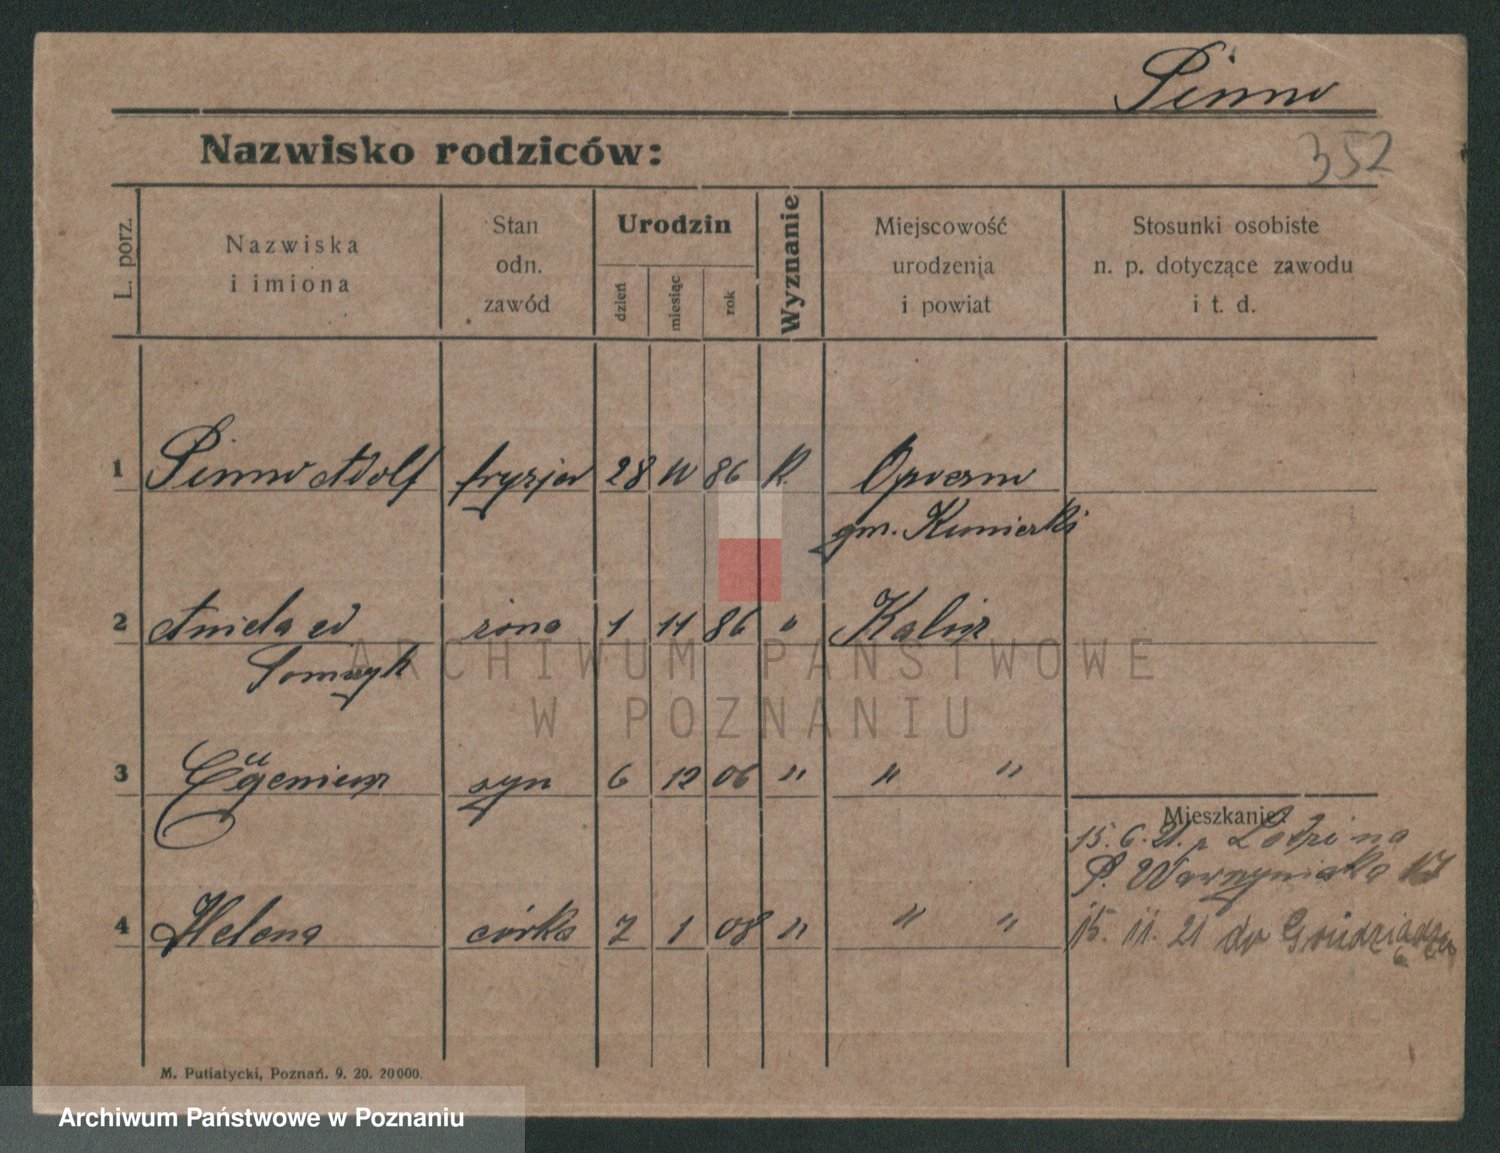 Pinno
Nazwisko rodziców:
352
L. porz.
Nazwiska
i imiona
Stan
odn.
zawód
Urodzin
dzień
miesiąc
rok
Wyznanie
Miejscowość
urodzenia
i powiat
Stosunki osobiste
n. p. dotyczące zawodu
i t. d.
1 Pinno Adolf fryzjer 28 86 R.
gm.
2 Aniela 1 11 86 " Kalisz
żona
Tomczyk
3 Eugeniusz syn 6 12 06 " " "
Mieszkanie:
15. 6. 21. z Łodzi na
P. Wawrzyniaka 17
4 Helena córka 2 1 08 " " "
15. 11. 21 do Grudziądza
M. Putiatycki, Poznań. 9. 20. 20000.
ARCHIWUM PAŃSTWOWE
W POZNANIU
Archiwum Państwowe w Poznaniu